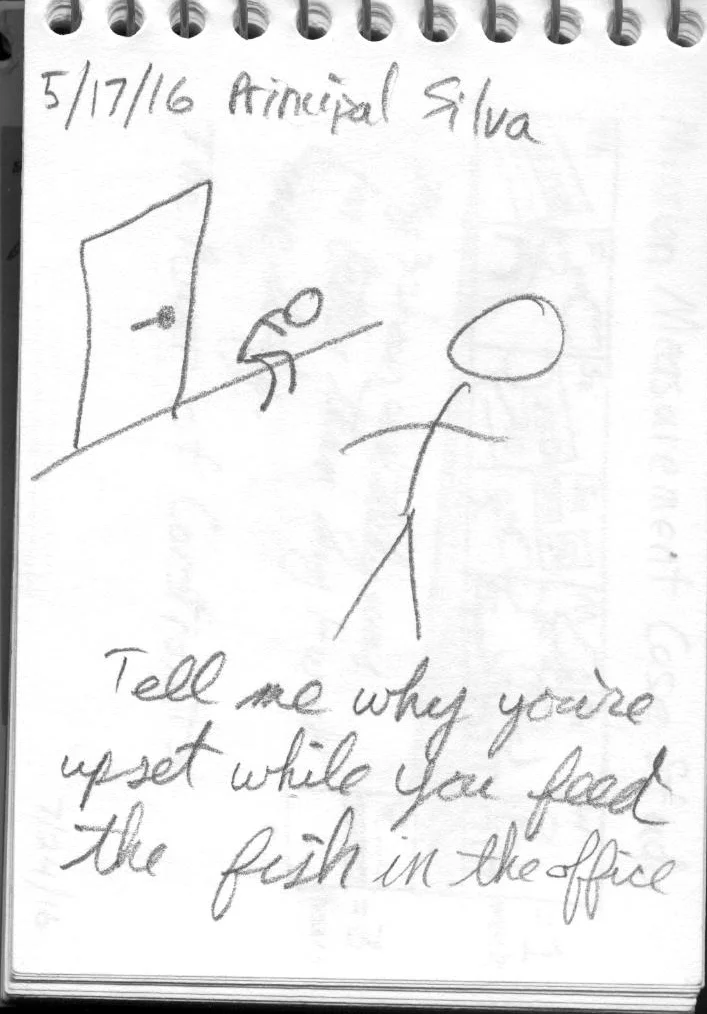 5/17/16 Principal Silva
Tell me why you're
upset while you feed
the fish in the office